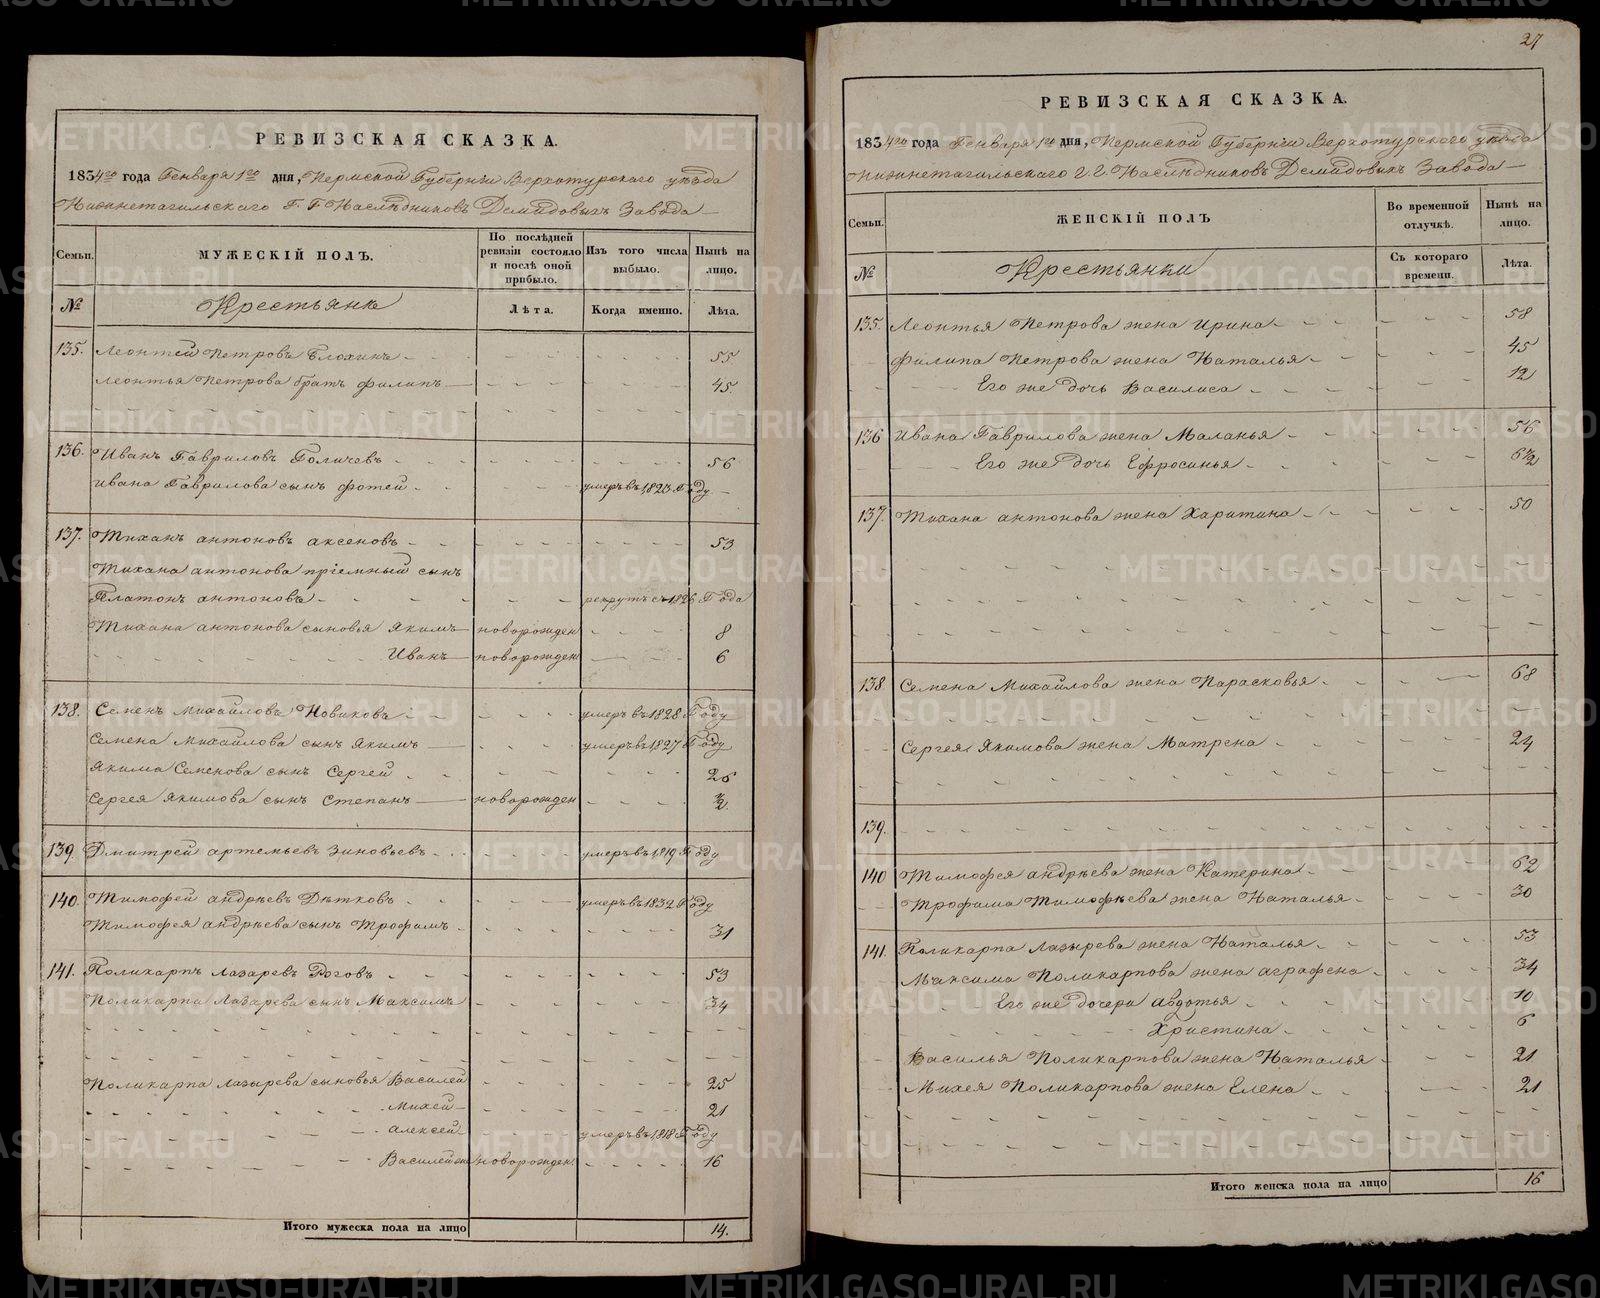 РЕВИЗСКАЯ СКАЗКА.
1834го года Генваря 1го дня, Пермской Губернiи Верхотурского уѣзда
Нижнетагильскаго Г. Г. Наслѣдниковъ Демидовыхъ Завода
Семьи.
МУЖЕСКІЙ ПОЛЪ.
По послѣдней ревизіи состояло и послѣ оной прибыло.
Изъ того числа выбыло.
Нынѣ на лицо.
№
Крестьяне
Лѣта.
Когда именно.
Лѣта.
135. Леонтей Петровъ Блохинъ 55
Леонтья Петрова братъ Филипъ 45.
136. Иванъ Гавриловъ Голичевъ 56
Ивана Гаврилова сынъ Фотей умеръ въ 1823 Году
137. Тиханъ антоновъ аксеновъ 53
Тихана антонова прiемный сынъ
Платонъ антоновъ рекрутъ съ 1826 Года
Тихана антонова сыновья Якимъ новорожден 8
Иванъ новорожден 6
138. Семенъ Михайловъ Новикова умеръ въ 1828 Году
Семена Михайлова сынъ Якимъ умеръ въ 1827 Году
Якима Семенова сынъ Сергей 26
Сергея Якимова сынъ Степанъ новорожден ½
139. Дмитрей артемьевъ Зиновьевъ умеръ въ 1819 Году
140. Тимофей андрѣевъ Дѣтковъ умеръ въ 1832 Году
Тимофея андрѣева сынъ Трофимъ 31
141. Поликарпъ Лазаревъ Роговъ 53
Поликарпа Лазарева сынъ Максимъ 34
Поликарпа Лазырева сыновья Василей 25
Михей 21
алексей умеръ въ 1818 Году
Василей же новорожден. 16
Итого мужеска пола на лицо 14.
27
РЕВИЗСКАЯ СКАЗКА.
1834го года Генваря 1го дня, Пермской Губернiи Верхотурского уѣзда
Нижнетагильскаго Г. Г. Наслѣдниковъ Демидовыхъ Завода
Семьи.
ЖЕНСКІЙ ПОЛЪ
Во временной отлучкѣ.
Нынѣ на лицо.
№
Крестьянки
Съ котораго времени.
Лѣта.
135. Леонтья Петрова жена Ирина 58
Филипа Петрова жена Наталья 45
Его же дочь Василиса 12
136 Ивана Гаврилова жена Маланья 56
Его же дочь Ефросинья 6½
137. Тихана антонова жена Харитина 50
138 Семена Михайлова жена Парасковья 68
Сергея Якимова жена Матрена 24
139.
140 Тимофея андрѣева жена Катерина 62
Трофима Тимофѣева жена Наталья 30
141. Поликарпа Лазырева жена Наталья 53
Максима Поликарпова жена аграфена 34
Его же дочери авдотья 10
Христина 6
Василья Поликарпова жена Наталья 21
Михея Поликарпова жена Елена 21
Итого женска пола на лицо 16
METRIKI.GASO-URAL.RU